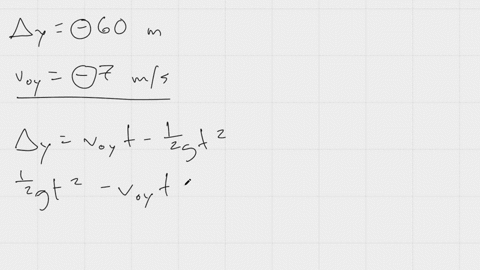 Δy = ⊖60 m
v₀y = ⊖7 m/s
Δy = v₀y t - ½gt²
½gt² - v₀y t